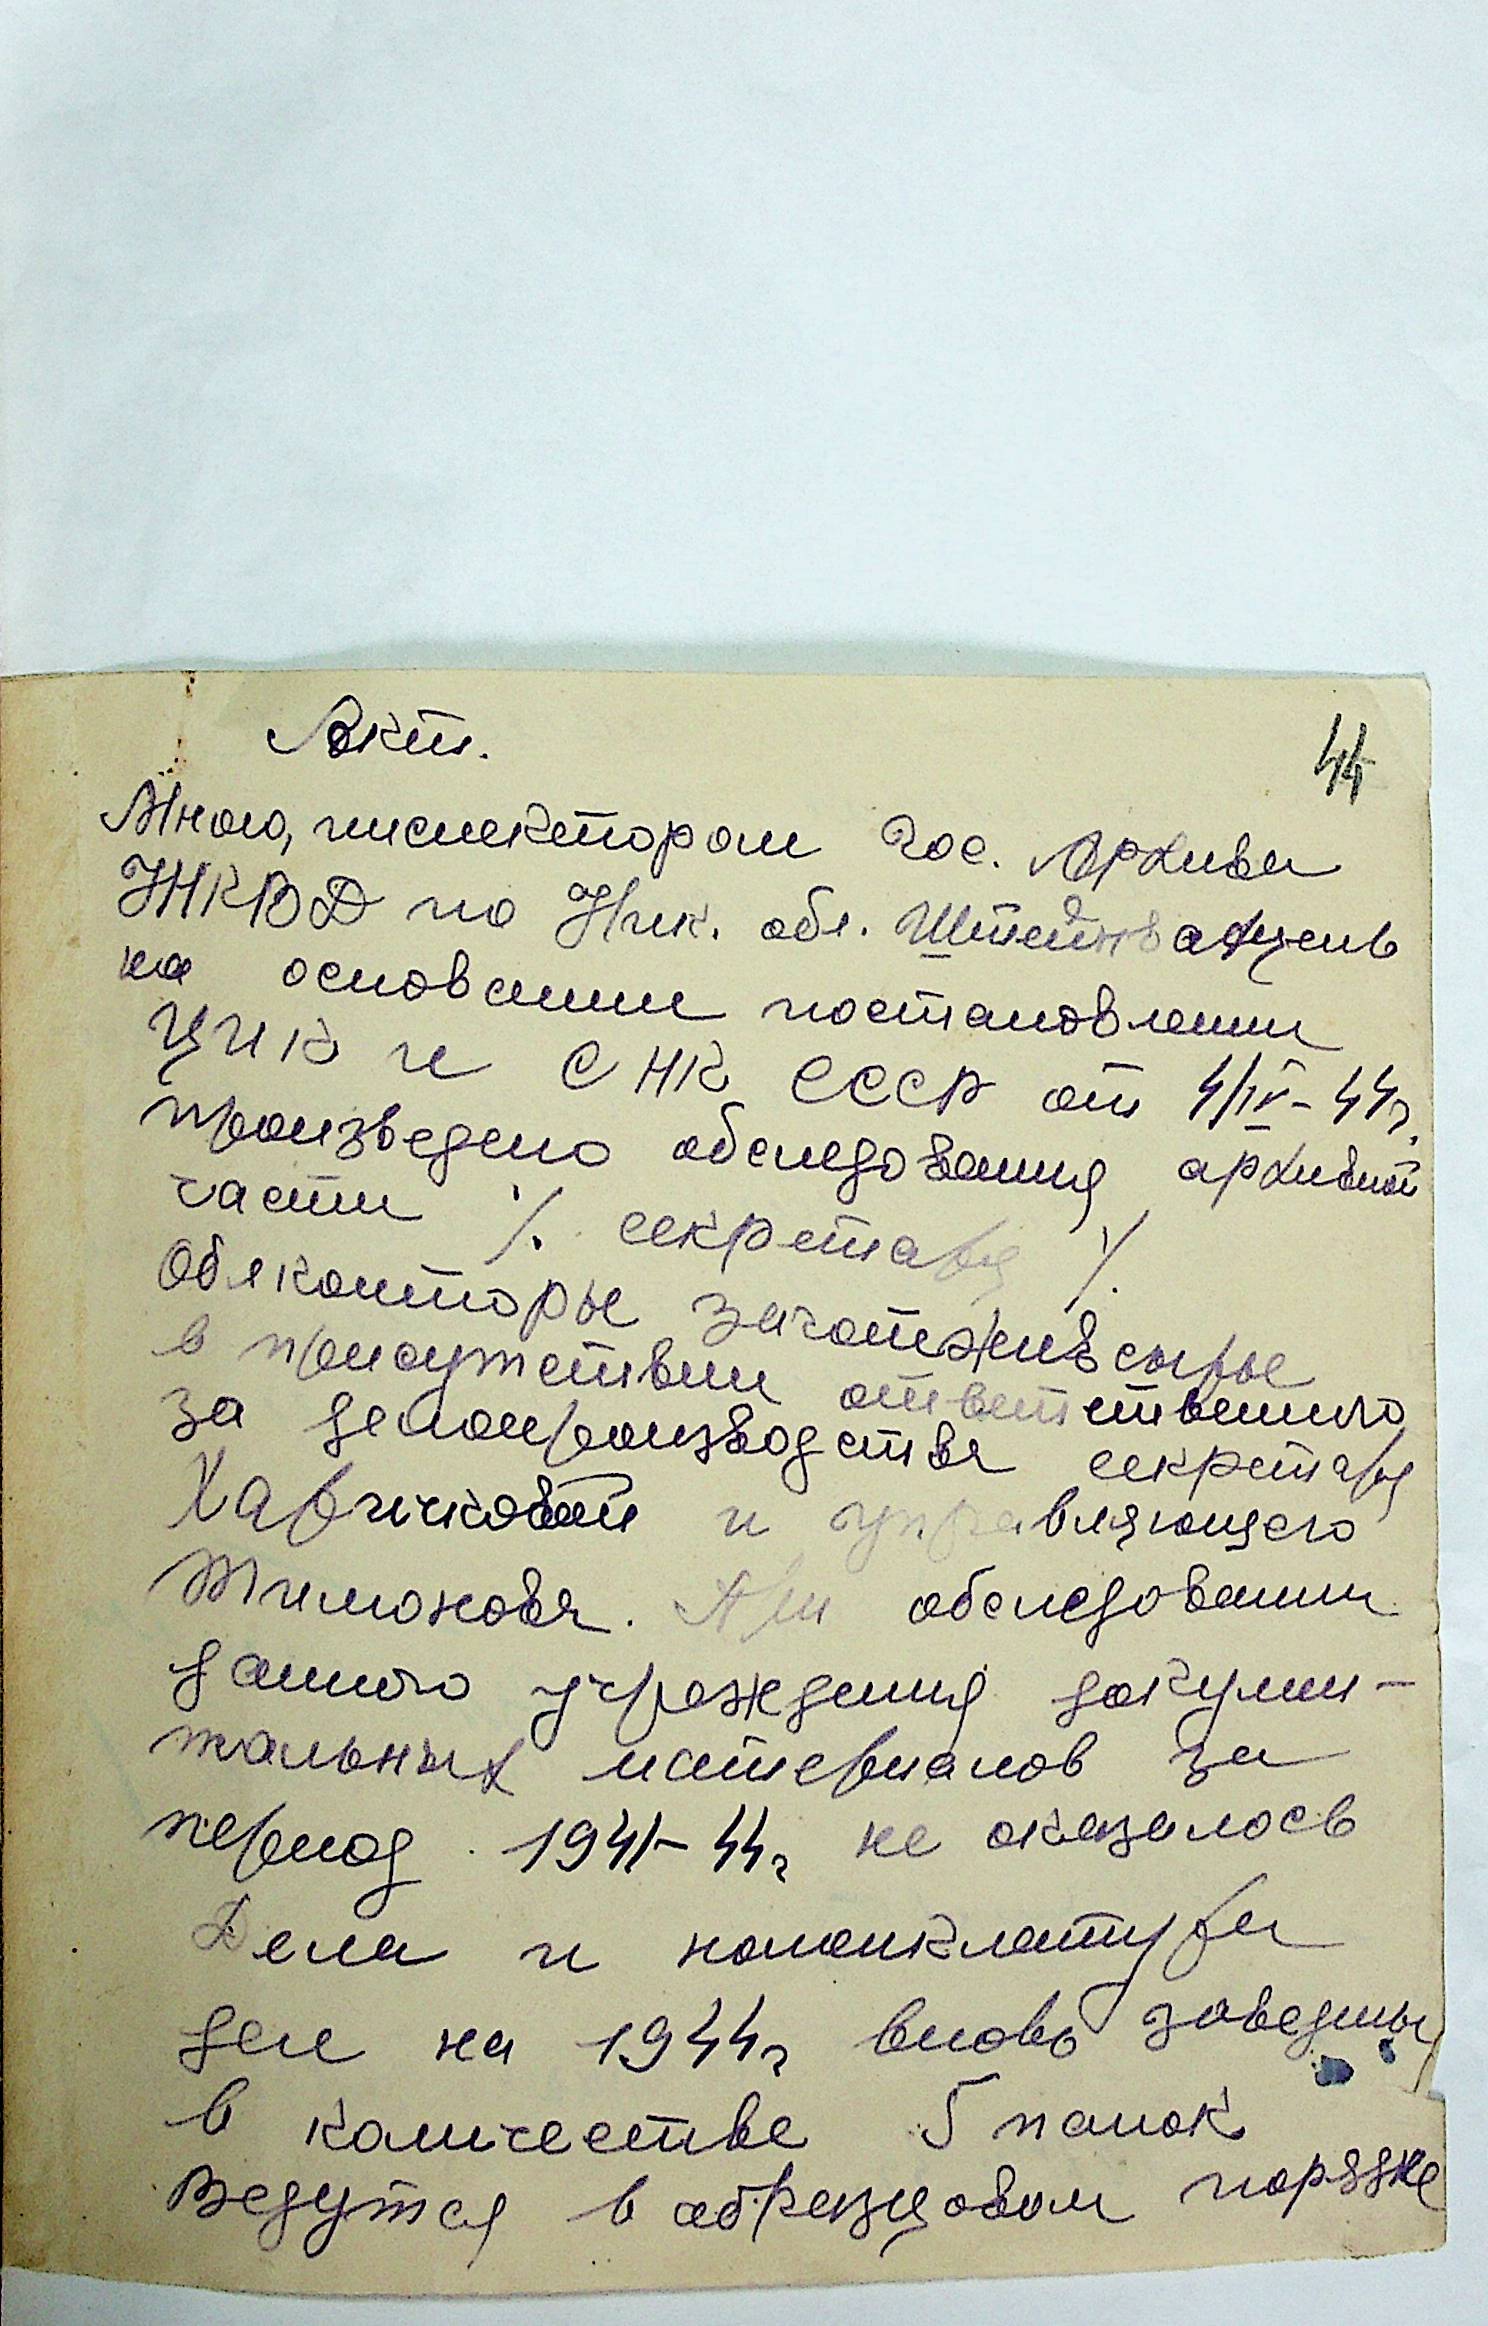 Акт.
44
Мною, инспектором Гос. Архива
УНКВД по Ник. обл. Штейнванцень
на основании постановлении
ЦИК и СНК СССР от 4/IV-44г.
произведено обследования архивной
части /. секретаря /.
Облконторы заготживсырье
в присутствии ответственного
за делопроизводства секретаря
Харичковой и управляющего
Тимонова. При обследовании
данного учреждения докумен-
тальных материалов за
период 1941-44г не оказалось
Дела и номенклатура
дел на 1944г вновь заведены
в количестве 5 папок
Ведутся в образцовом порядке